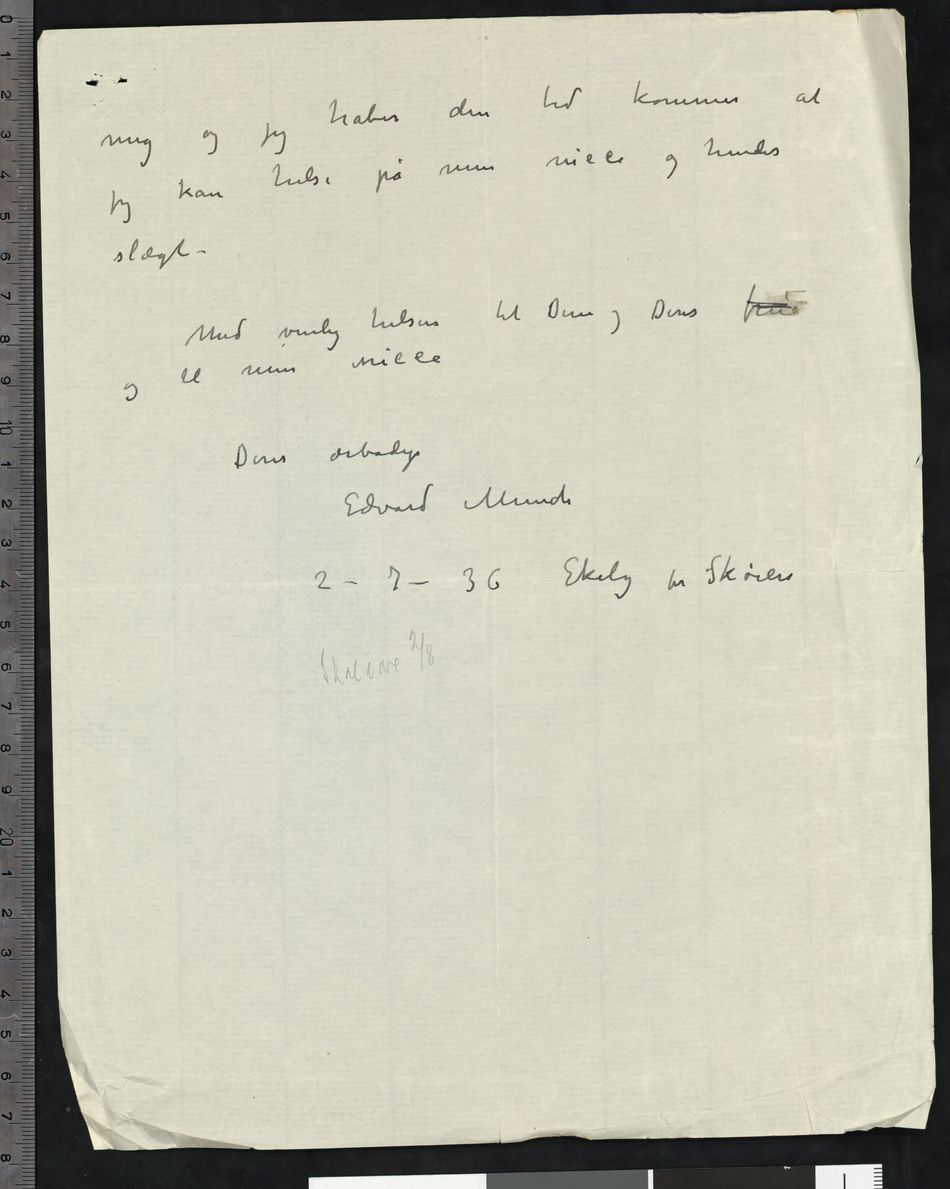 mig og jeg haber den tid kommer at
jeg kan hilse på min niece og hendes
slægt –
Med venlig hilsen til Dem og Deres frue
og til min niece
Deres ærbødige
Edvard Munch
2 – 7 – 36 Ekely pr Skøien
Skal være 2/8